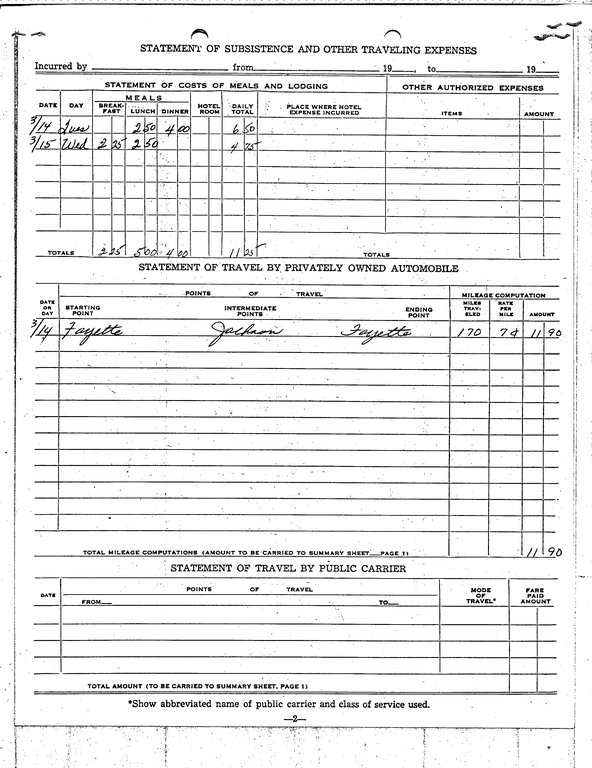 STATEMENT OF SUBSISTENCE AND OTHER TRAVELING EXPENSES
Incurred by from 19 , to 19
STATEMENT OF COSTS OF MEALS AND LODGING OTHER AUTHORIZED EXPENSES
DATE DAY MEALS HOTEL ROOM DAILY TOTAL PLACE WHERE HOTEL EXPENSE INCURRED ITEMS AMOUNT
BREAK-FAST LUNCH DINNER
3/14 Tues 2 50 4 00 6 50
3/15 Wed 2 25 2 50 4 75
TOTALS 2 25 5 00 4 00 11 25 TOTALS
STATEMENT OF TRAVEL BY PRIVATELY OWNED AUTOMOBILE
POINTS OF TRAVEL MILEAGE COMPUTATION
DATE OR DAY STARTING POINT INTERMEDIATE POINTS ENDING POINT MILES TRAV-ELED RATE PER MILE AMOUNT
3/14 Fayette Jackson Fayette 170 7¢ 11 90
TOTAL MILEAGE COMPUTATIONS (AMOUNT TO BE CARRIED TO SUMMARY SHEET—PAGE 1) 11 90
STATEMENT OF TRAVEL BY PUBLIC CARRIER
DATE POINTS OF TRAVEL MODE OF TRAVEL* FARE PAID AMOUNT
FROM— TO—
TOTAL AMOUNT (TO BE CARRIED TO SUMMARY SHEET, PAGE 1)
*Show abbreviated name of public carrier and class of service used.
—2—